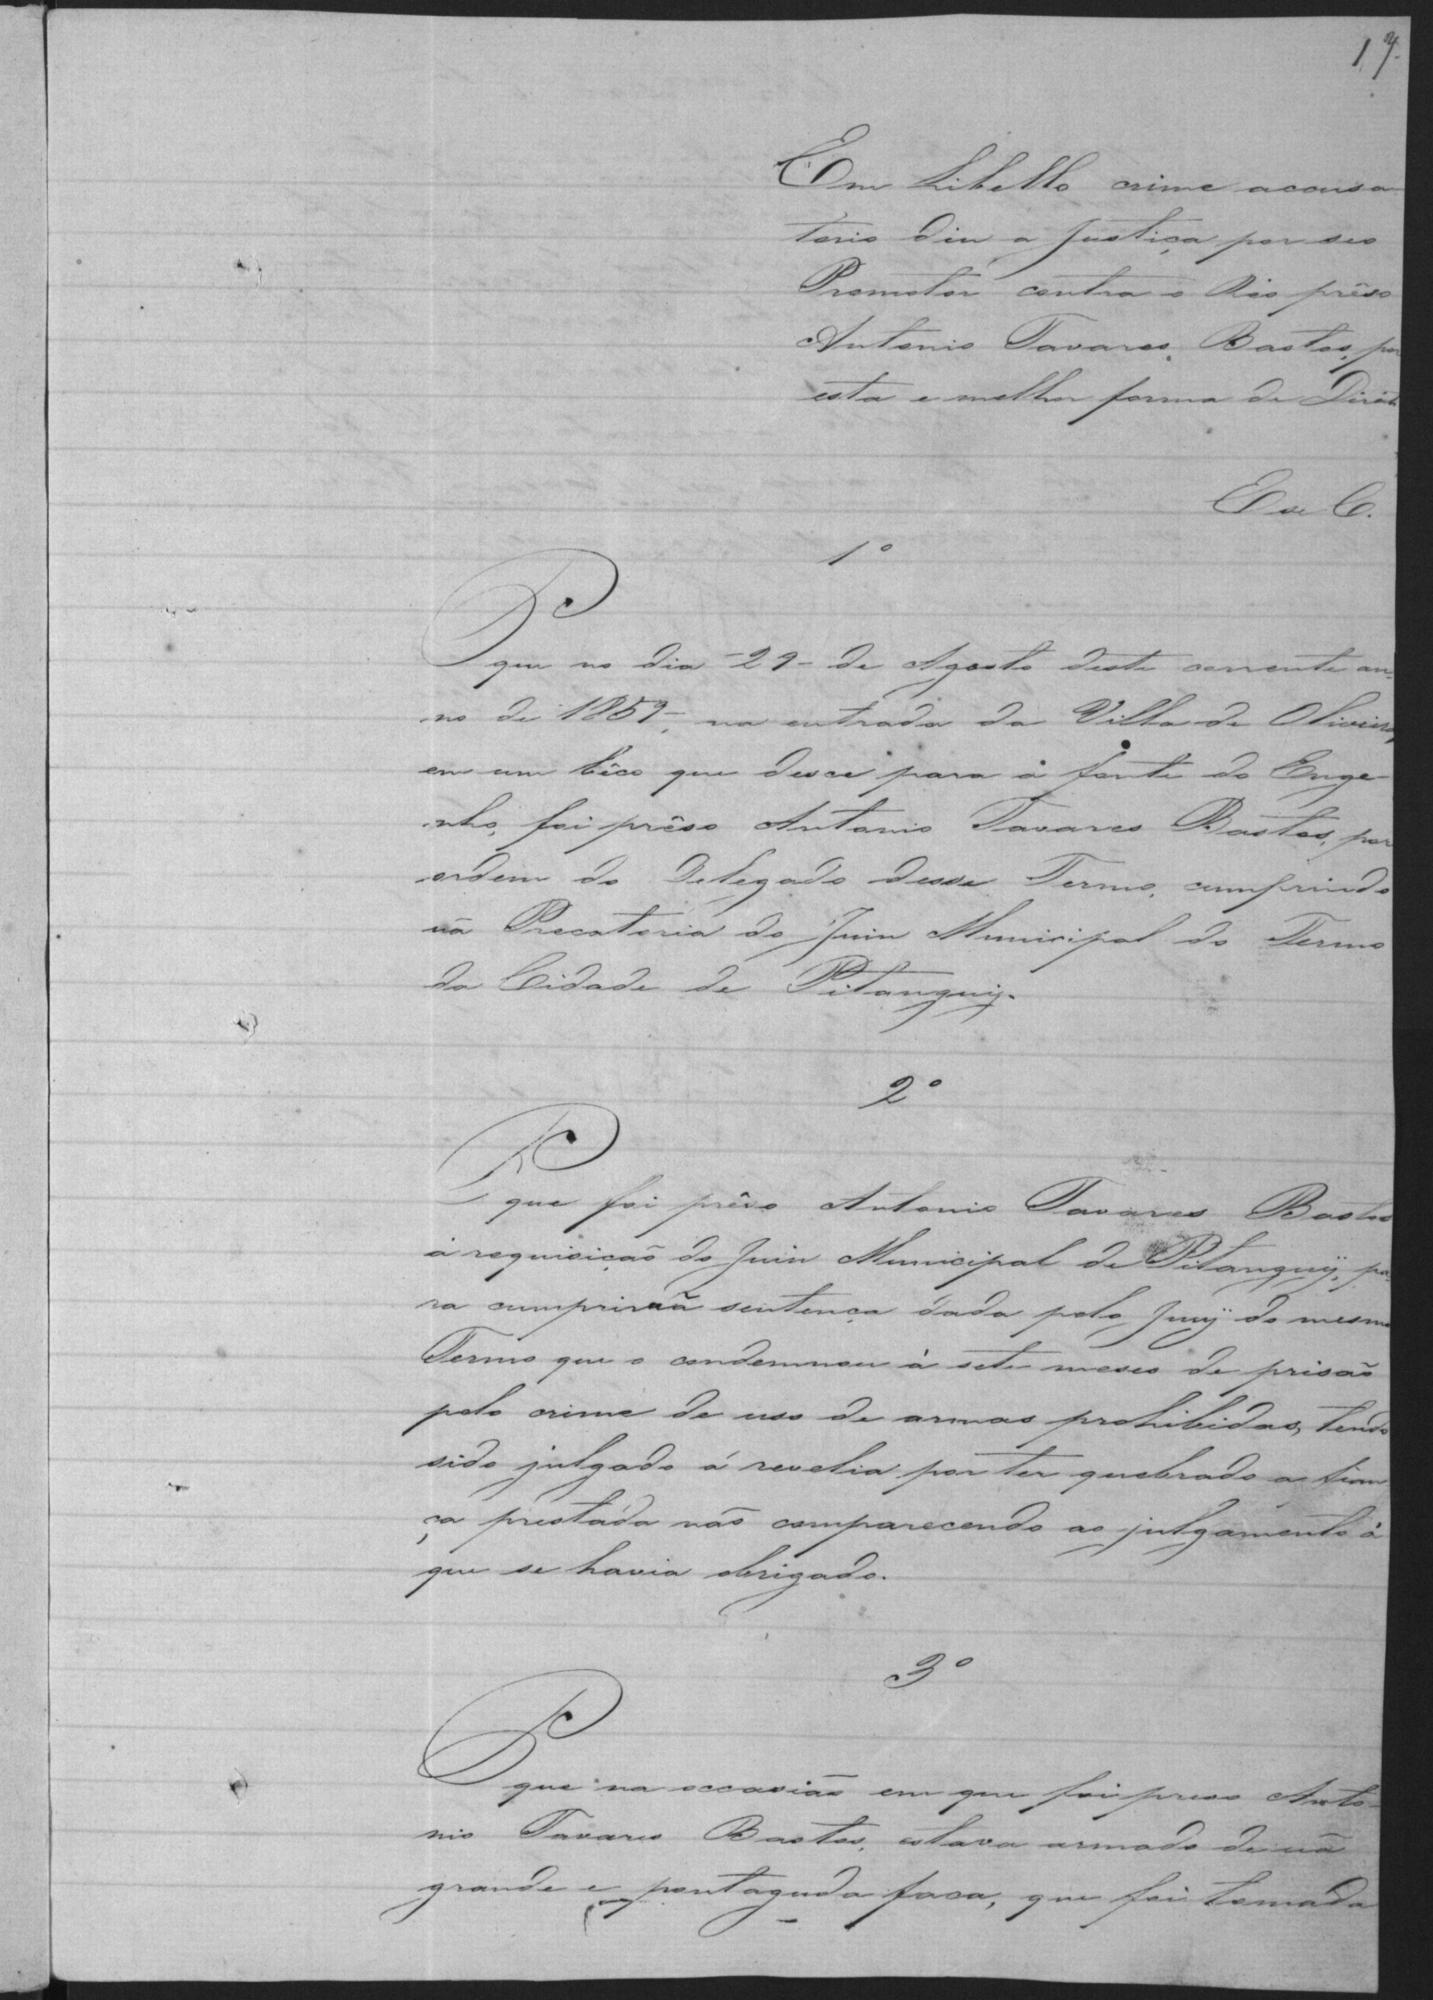 17.
Em Libello crime accusa-
torio diz a Justiça por seo
Promotor contra o Réo prêso
Antonio Tavares Bastos, por
esta e melhor forma de Direito
E se C.
1º
P
que no dia -29- de Agosto deste corrente an-
no de 1859, na entrada da Villa de Oliveira,
em um bêco que desce para a fonte do Enge-
nho, foi prêso Antonio Tavares Bastos, por
ordem do Delegado desse Termo, cumprindo
uã Precatoria do Juiz Municipal do Termo
da Cidade de Pitanguÿ.
2º
P
que foi prêso Antonio Tavares Bastos
á requisição do Juiz Municipal de Pitanguÿ, pa-
ra cumprir uã sentença dada pelo Jury do mesmo
Termo que o condemnou á sete meses de prisaõ
pelo crime de uso de armas prohibidas, tendo
sido julgado á revelia por ter quebrado a fian
ça prestada naõ comparecendo ao julgamento á
que se havia obrigado.
3º
P
que na occasiaõ em que foi preso Anto-
nio Tavares Bastos, estava armado de uã
grande e pontaguda faca, que foi tomada